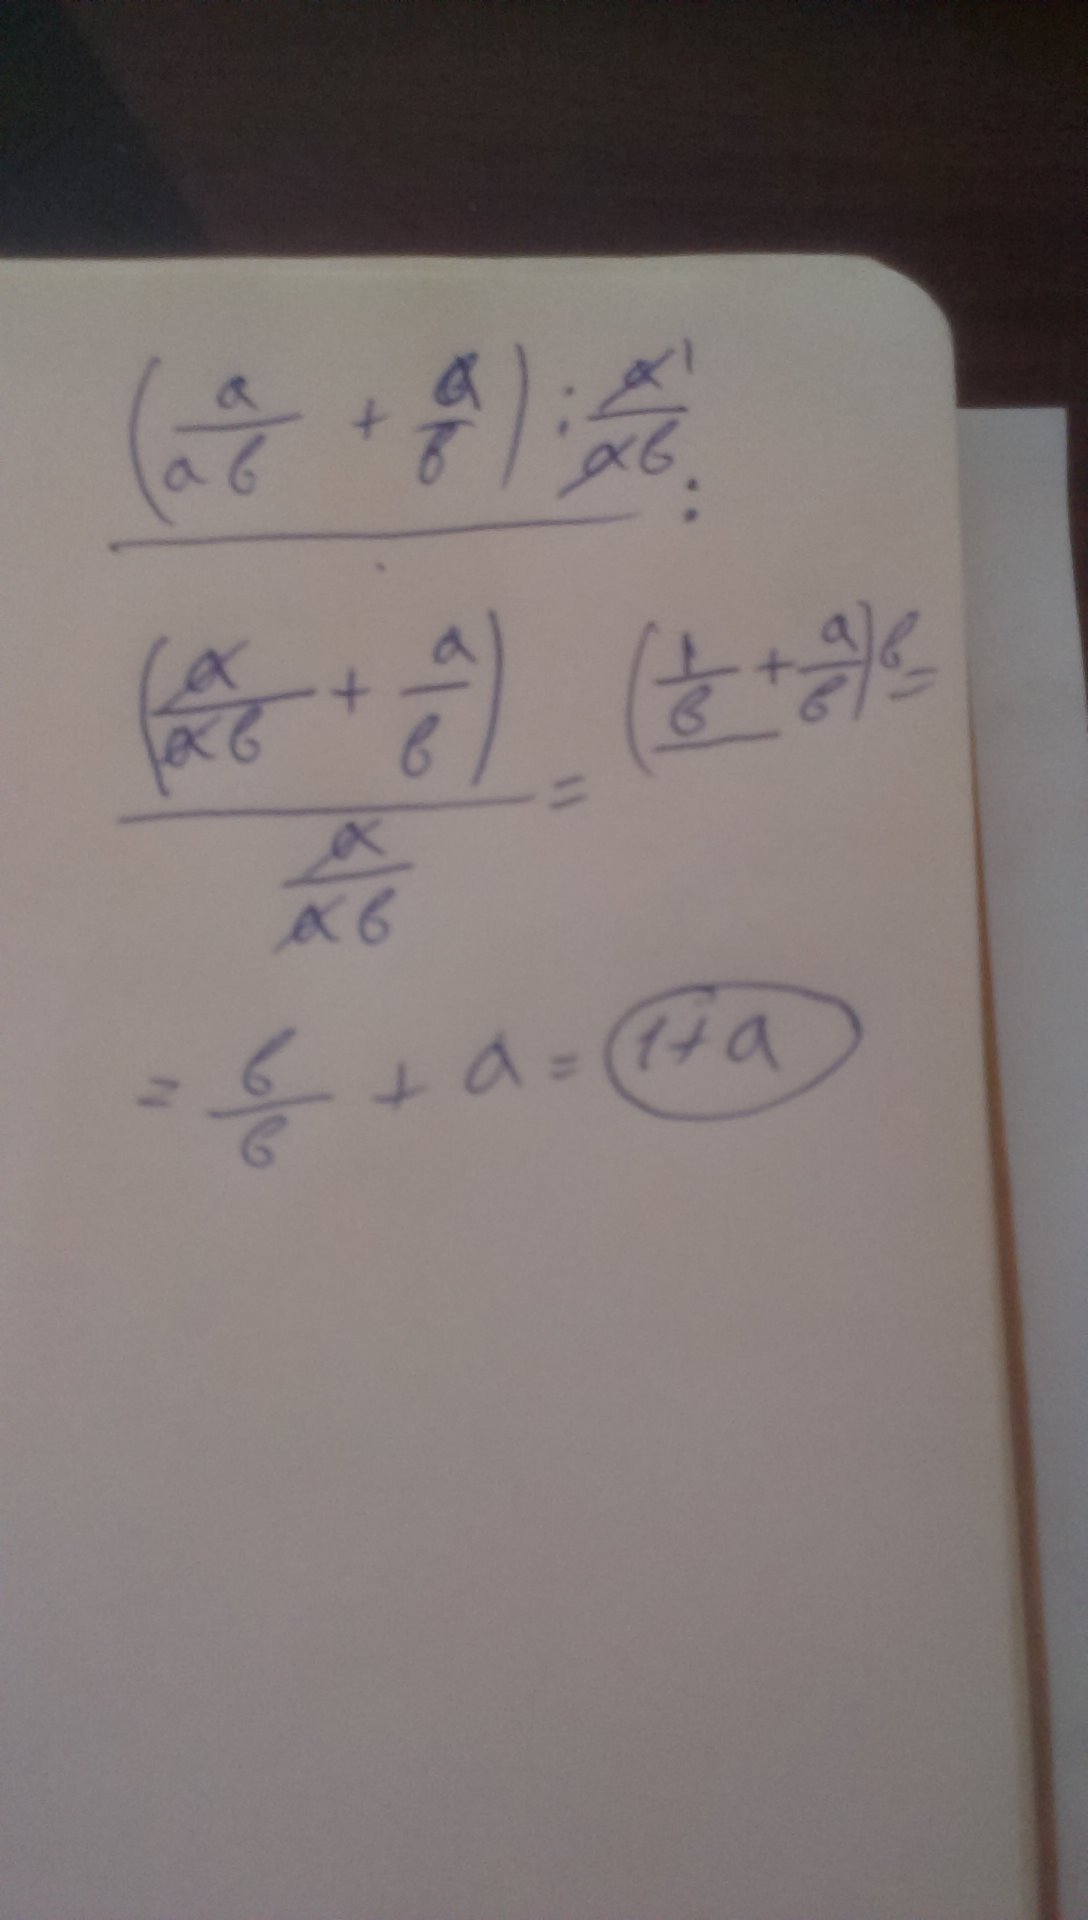 (a/ab + a/b) : a¹/ab :
(a/ab + a/b) / (a/ab) = (1/b + a/b)b =
= b/b + a = 1+a